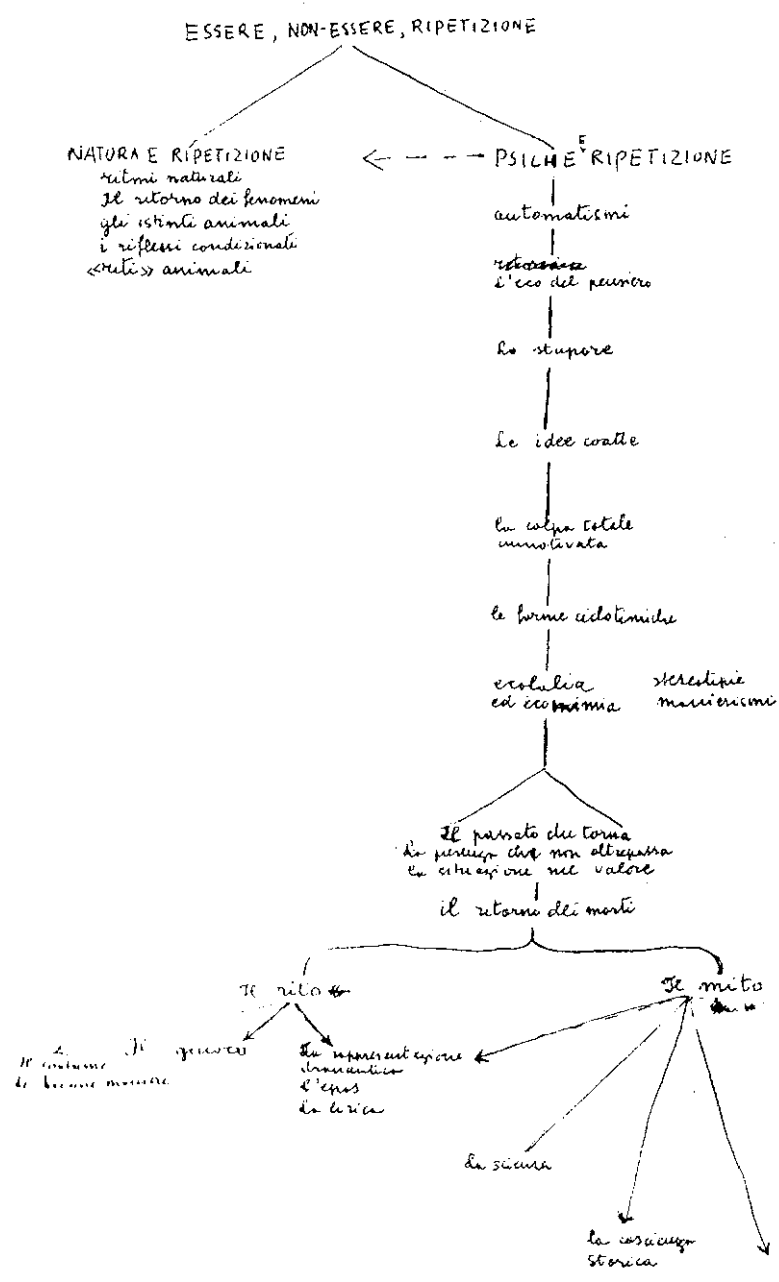 ESSERE, NON-ESSERE, RIPETIZIONE
NATURA E RIPETIZIONE
ritmi naturali
Il ritorno dei fenomeni
gli istinti animali
i riflessi condizionati
«riti» animali
PSICHE E RIPETIZIONE
automatismi
l'eco del pensiero
Lo stupore
Le idee coatte
la colpa totale
immotivata
le forme ciclotimiche
ecolalia stereotipie
ed ecomimia manierismi
Il passato che torna
La presenza che non oltrepassa
la situazione nel valore
il ritorno dei morti
Il rito
Il mito
Il giuoco
Il costume
le buone maniere
La rappresentazione
drammatica
l'epos
La lirica
La scienza
la coscienza
storica